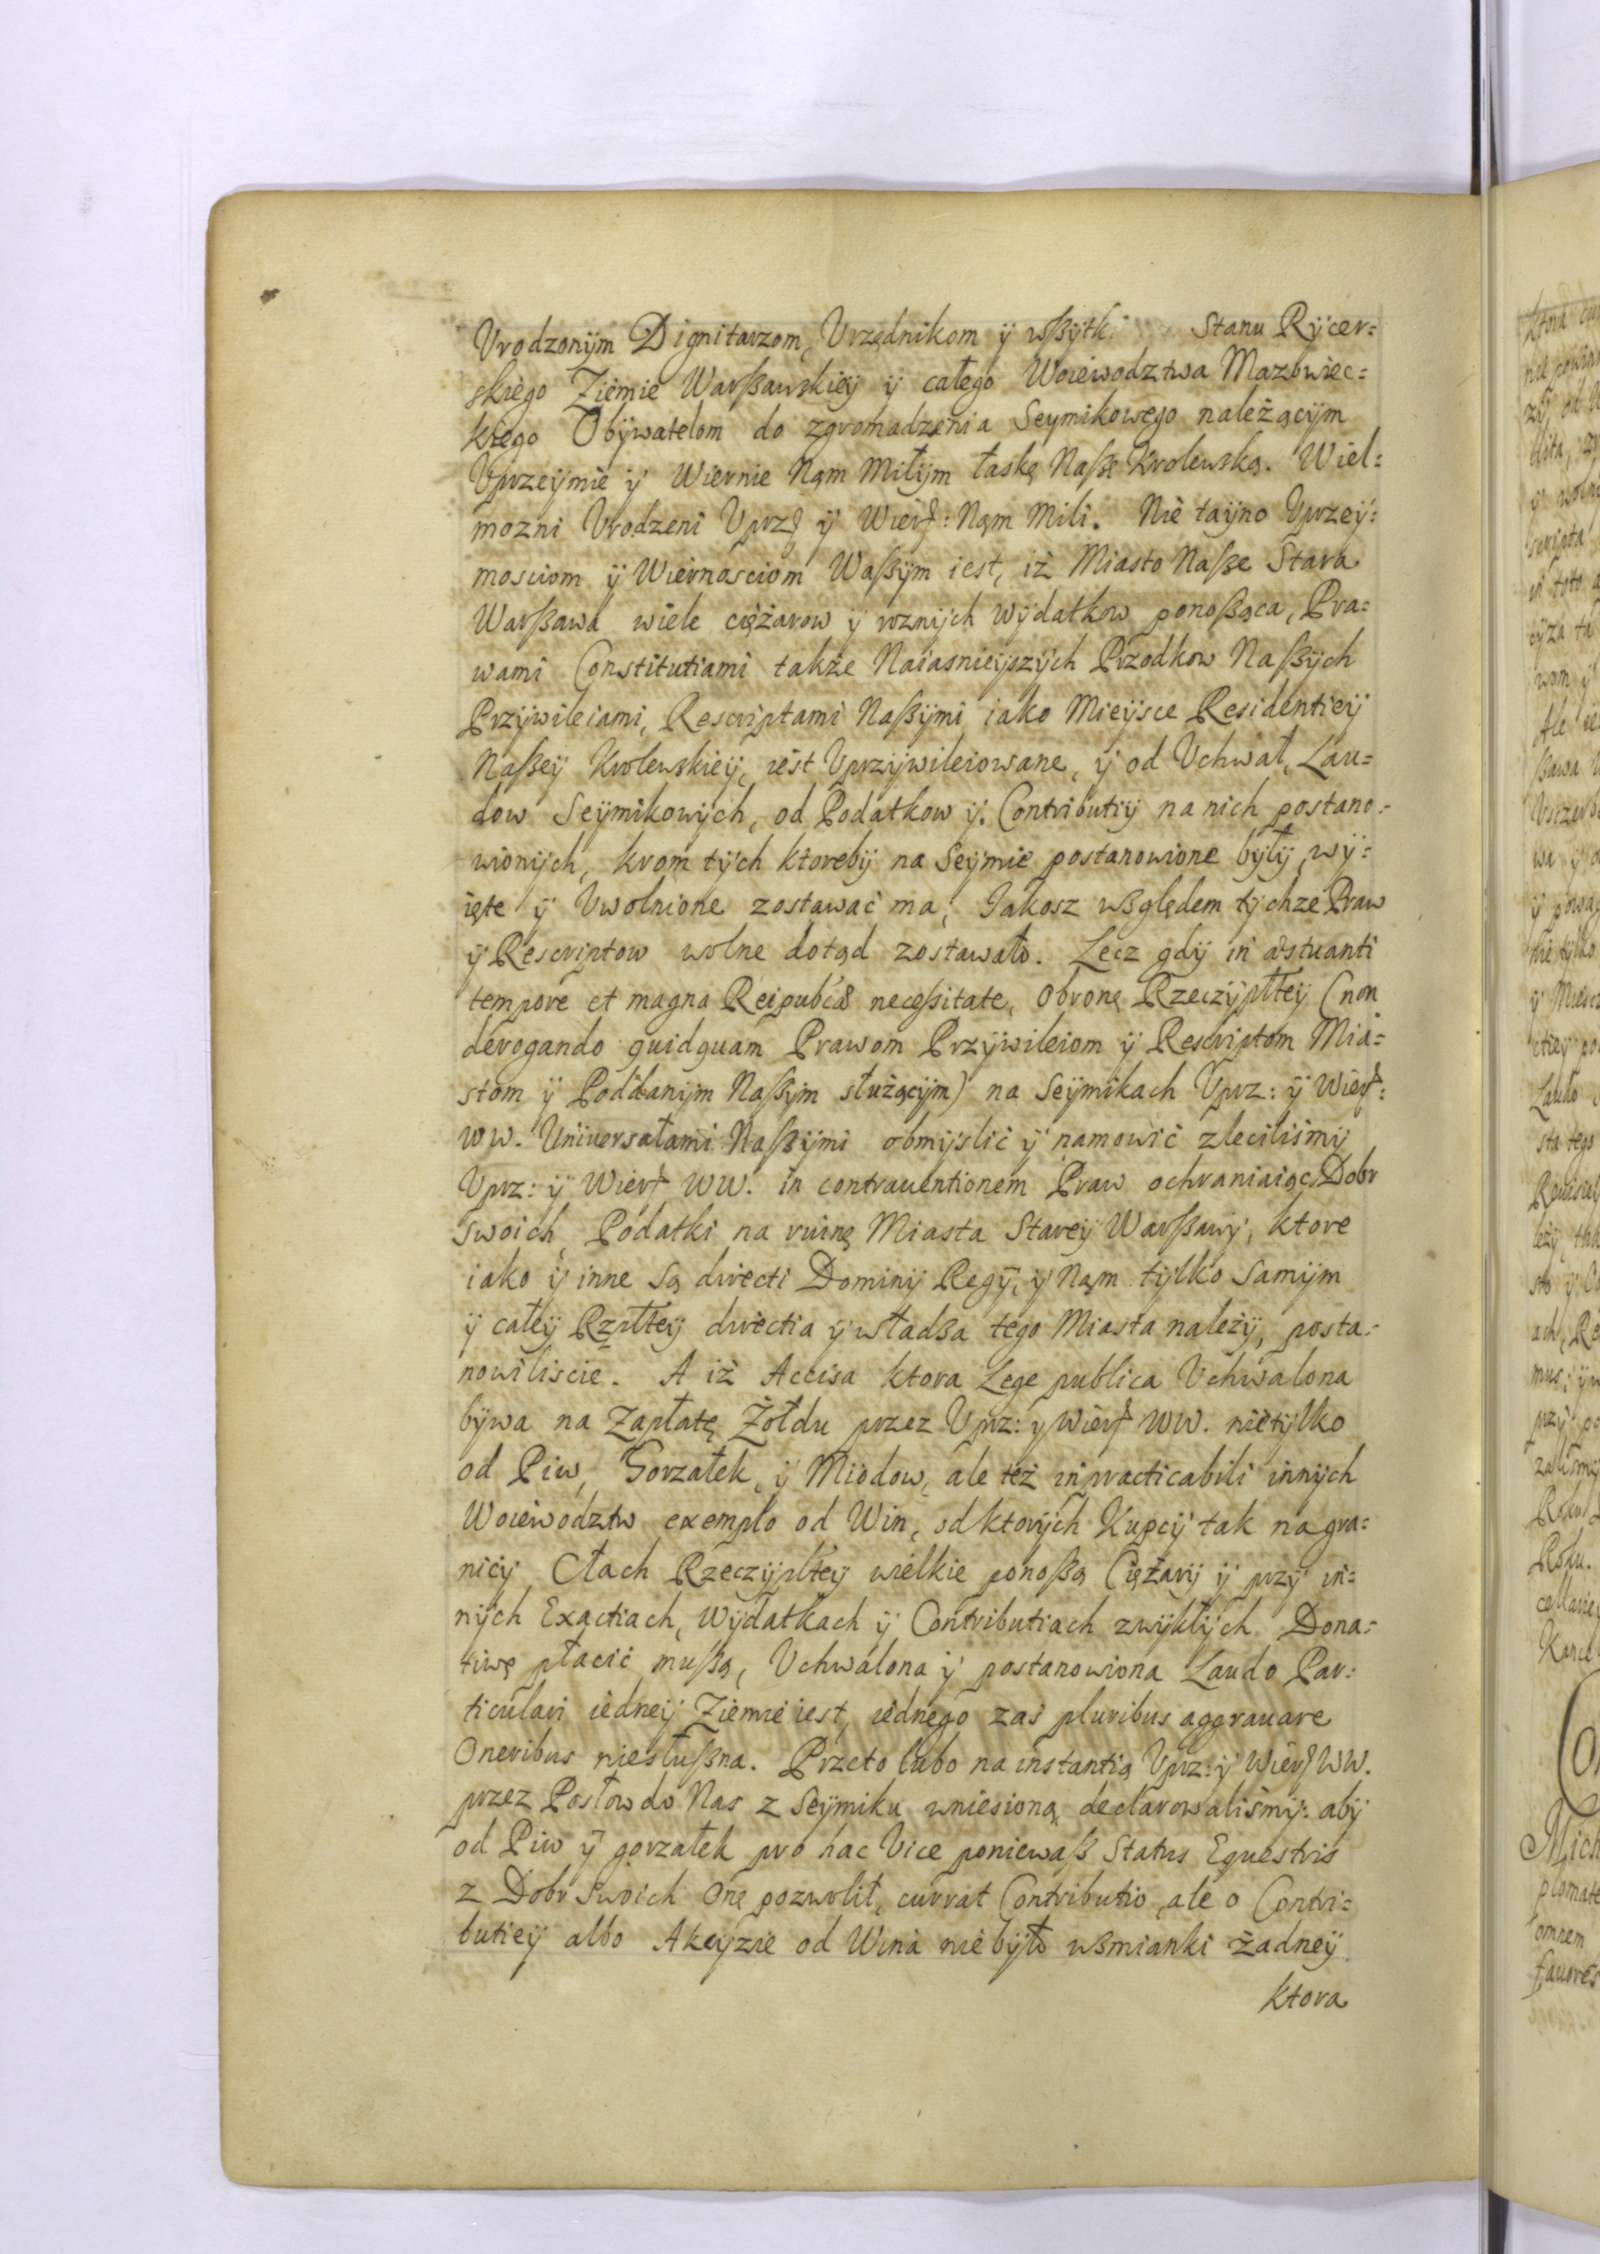 Vrodzonÿm Dignitarzom, Vrzędnikom ÿ wßÿtk Stanu Rÿcer=
skiego Ziemie Warßawskieÿ ÿ całego Woiewodztwa Mazowiec=
kiego Obÿwatelom do zgromadzenia Seymikowego należącÿm
Vprzeÿmie ÿ Wiernie Nąm Miłÿm łaskę Naßę Krolewską. Wiel=
mozni Vrodzeni Vprz ÿ Wier: Nąm Mili. Nie taÿno Vprzeÿ=
mosciom ÿ Wiernosciom Waßÿm iest, iż Miasto Naße Stara
Warßawa wiele ciężarow ÿ roznÿch wÿdatkow ponoßąca, Pra=
wami Constitutiami także Naiasnieÿszÿch Przodkow Naßÿch
Przÿwileiami, Rescriptami Naßÿmi iako Mieÿsce Residentieÿ
Naßeÿ Krolewskieÿ, iest Vprzÿwileiowane, ÿ od Vchwał, Lau=
dow Seÿmikowÿch, od Podatkow ÿ Contributiÿ na nich postano=
wionÿch, krom tÿch ktorebÿ na Seÿmie postanowione bÿłÿ, wÿ=
ięte ÿ Vwolnione zostawać ma, Jakosz wßględem tÿchze Praw
ÿ Rescriptow wolne dotąd zostawało. Lecz gdÿ in æstuanti
tempore et magna Reipubcæ necessitate, obronę Rzeczÿpłteÿ (non
derogando quidquam Prawom Przÿwileiom ÿ Rescriptom Mia=
stom ÿ Poddanÿm Naßÿm służącÿm) na Seÿmikach Vprz: ÿ Wier:
WW. Uniwersałami Naßÿmi obmÿslić ÿ namowić zleciliśmÿ
Vprz: ÿ Wier WW. in contrauentionem Praw ochraniaiąc Dobr
swoich Podatki na ruinę Miasta Stareÿ Warßawÿ, ktore
iako ÿ inne są directi Dominij Regÿ, ÿ Nąm tÿlko samÿm
ÿ całeÿ Rzpłteÿ directia ÿ władßa tego Miasta należÿ, posta=
nowiliscie. A iż Accisa ktora Lege publica Vchwalona
bÿwa na Zapłatę Żołdu przez Vprz: ÿ Wier WW. nietÿlko
od Piw, Gorzałek, ÿ Miodow, ale też inpracticabili innÿch
Woiewodztw exemplo od Win, od ktorÿch Kupcÿ tak na gra=
nicÿ Cłach Rzeczÿpłteÿ wielkie ponoßą Ciężarÿ ÿ przÿ in=
nÿch Exactiach, Wÿdatkach ÿ Contributiach zwÿkłÿch Dona=
tiwę płacić mußą, Vchwalona ÿ postanowiona Laudo Par=
ticulari iedneÿ Ziemie iest, iednego zaś pluribus aggrauare
Oneribus niesłußna. Przeto lubo na instantią Vprz: ÿ Wier WW.
przez Posłow do Nas z Seÿmiku wniesioną declarowaliśmÿ: abÿ
od Piw ÿ gorzałek pro hac Vice poniewaß Status Equestris
z Dobr Swoich Onę pozwolił, currat Contributio, ale o Contri=
butieÿ albo Akcÿzie od Wina nie bÿło wßmianki żadneÿ
ktora